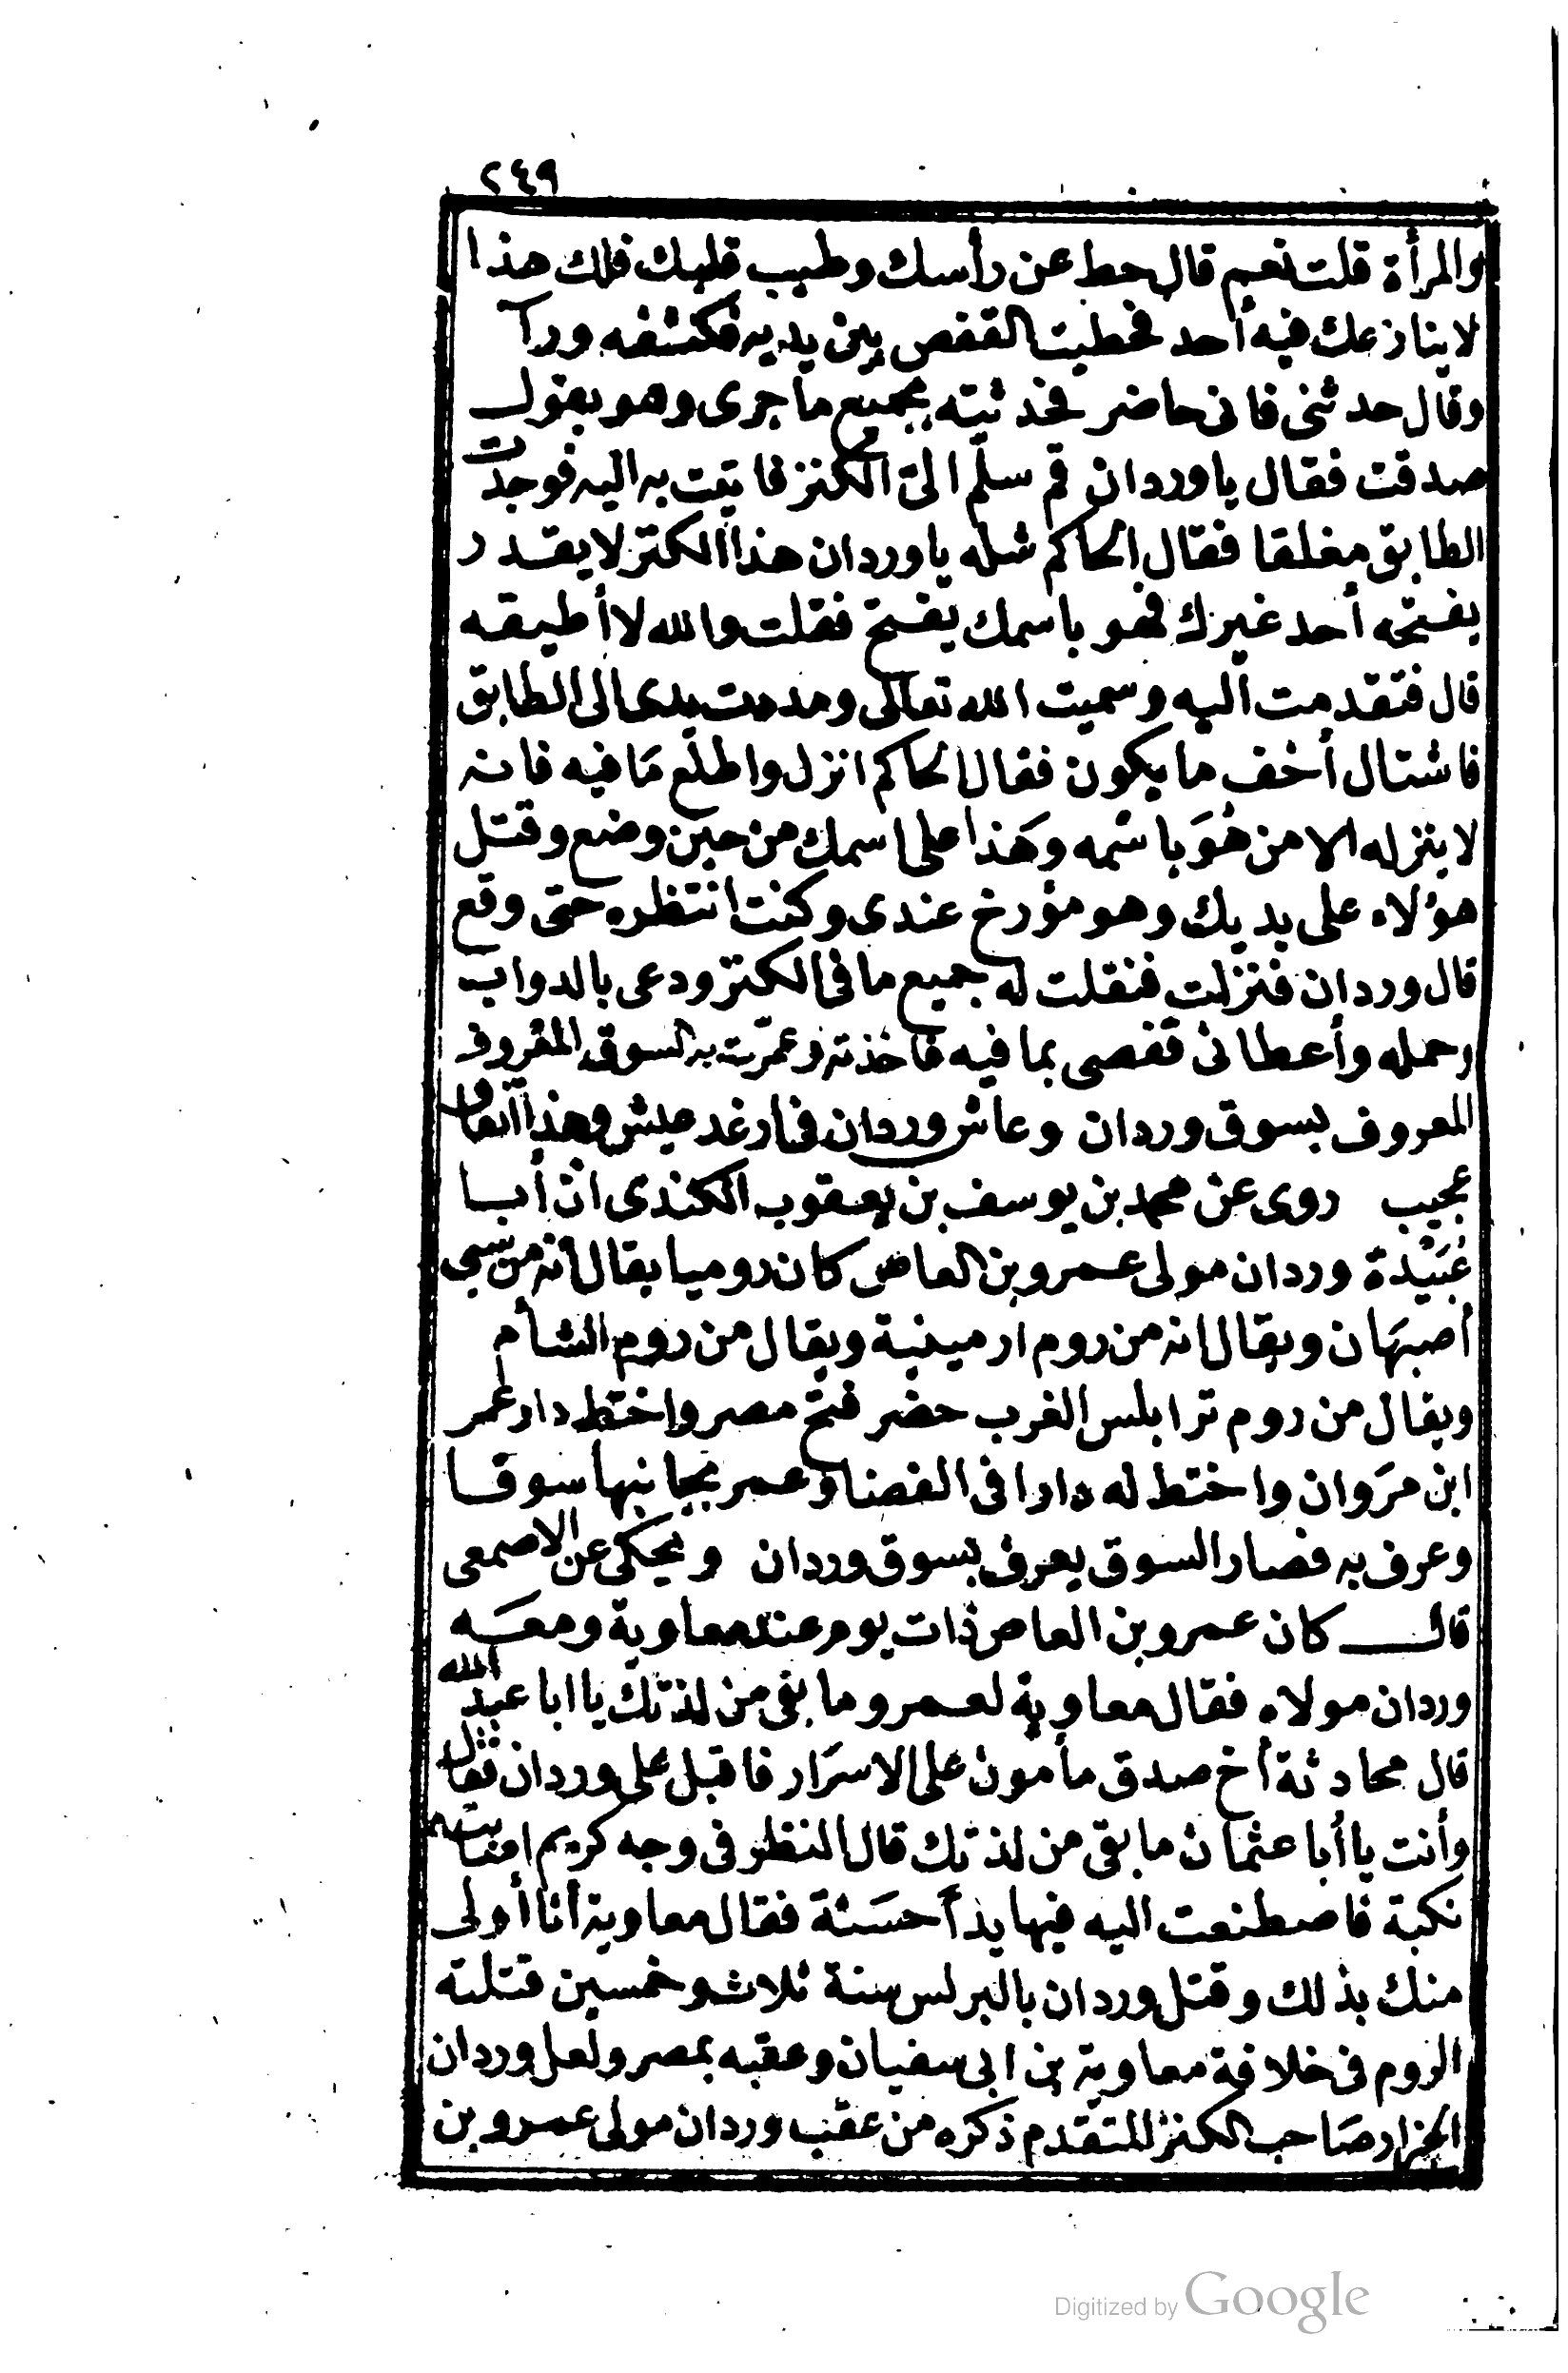 ٢٤٩
والمرأة قلت نعم قال حط عن رأسك وطيب قلبك فلك هذا
لا ينازعك فيه أحد فحطيت القفص بين يديه فكشفه ورآ
وقال حدثنى فانى حاضر فحدثيته بجميع ما جرى وهو يقول
صدقت فقال يا وردان قم سلّم الىّ الكنز فاتيت به اليه فوجدت
الطابق مغلقا فقال الحاكم شله يا وردان هذا الكنز لا يقدر
يفتحه أحد غيرك فهو باسمك يفتح فقلت والله لا أطيقه
قال فتقدمت اليه وسميت الله تعالى ومددت يدى الى الطابق
فاشتال أخف ما يكون فقال الحاكم انزل واطلع مَا فيه فانه
لا ينزله الا من هُوَ باسْمه وهَذا على اسمك من حين وضع وقتل
هؤلاء على يديك وهو مؤرخ عندى وكنت انتظره حتى وقع
قال وردان فنزلت فنقلت له جميع ما فى الكنز ودعى بالدواب
وحمله وأعطانى قفصى بما فيه فاخذته وعمّرت به السوق المعروف
المعروف بسوق وردان وعاش وردان فى ارغد عيش وهذا اتفاق
عجيب روى عن محمد بن يوسف بن يعقوب الكندى ان أبا
عُبَيْدة وردان مولى عمرو بن العاص كان روميا يقال انه من سبي
أصبهَان ويقال انه من روم ارمينية ويقال من روم الشأم
ويقال من روم ترابلس الغرب حضر فتح مصر واختط دار عمر
ابن مرَوان واختط له دارا فى الفضا وعمر بجانبها سوقا
وعرف به فصار السوق يعرف بسوق وردان ويحكى عن الاصمعى
قال كان عمرو بن العاص ذات يوم عند معاوية ومعه
وردان مولاه فقال معاوية لعمرو ما بقى من لذتك يا ابا عبد الله
قال محادثة أخ صدق مأمون على الاسرَار فاقبل على وردان فقال
وأنت يا أبا عثمان ما بقى من لذتك قال النظر فى وجه كريم اصابته
نكبة فاصطنعت اليه فيها يداً حسَنة فقال معاوية أنا أولى
منك بذلك وقتل وردان بالبرلس سنة ثلاث وخمسين قتلته
الروم فى خلافة معاوية بن ابى سفيان وعقبه بمصر ولعل وردان
الجزار صَاحب الكنز المتقدم ذكره من عقب وردان مولى عمرو بن
Digitized by Google